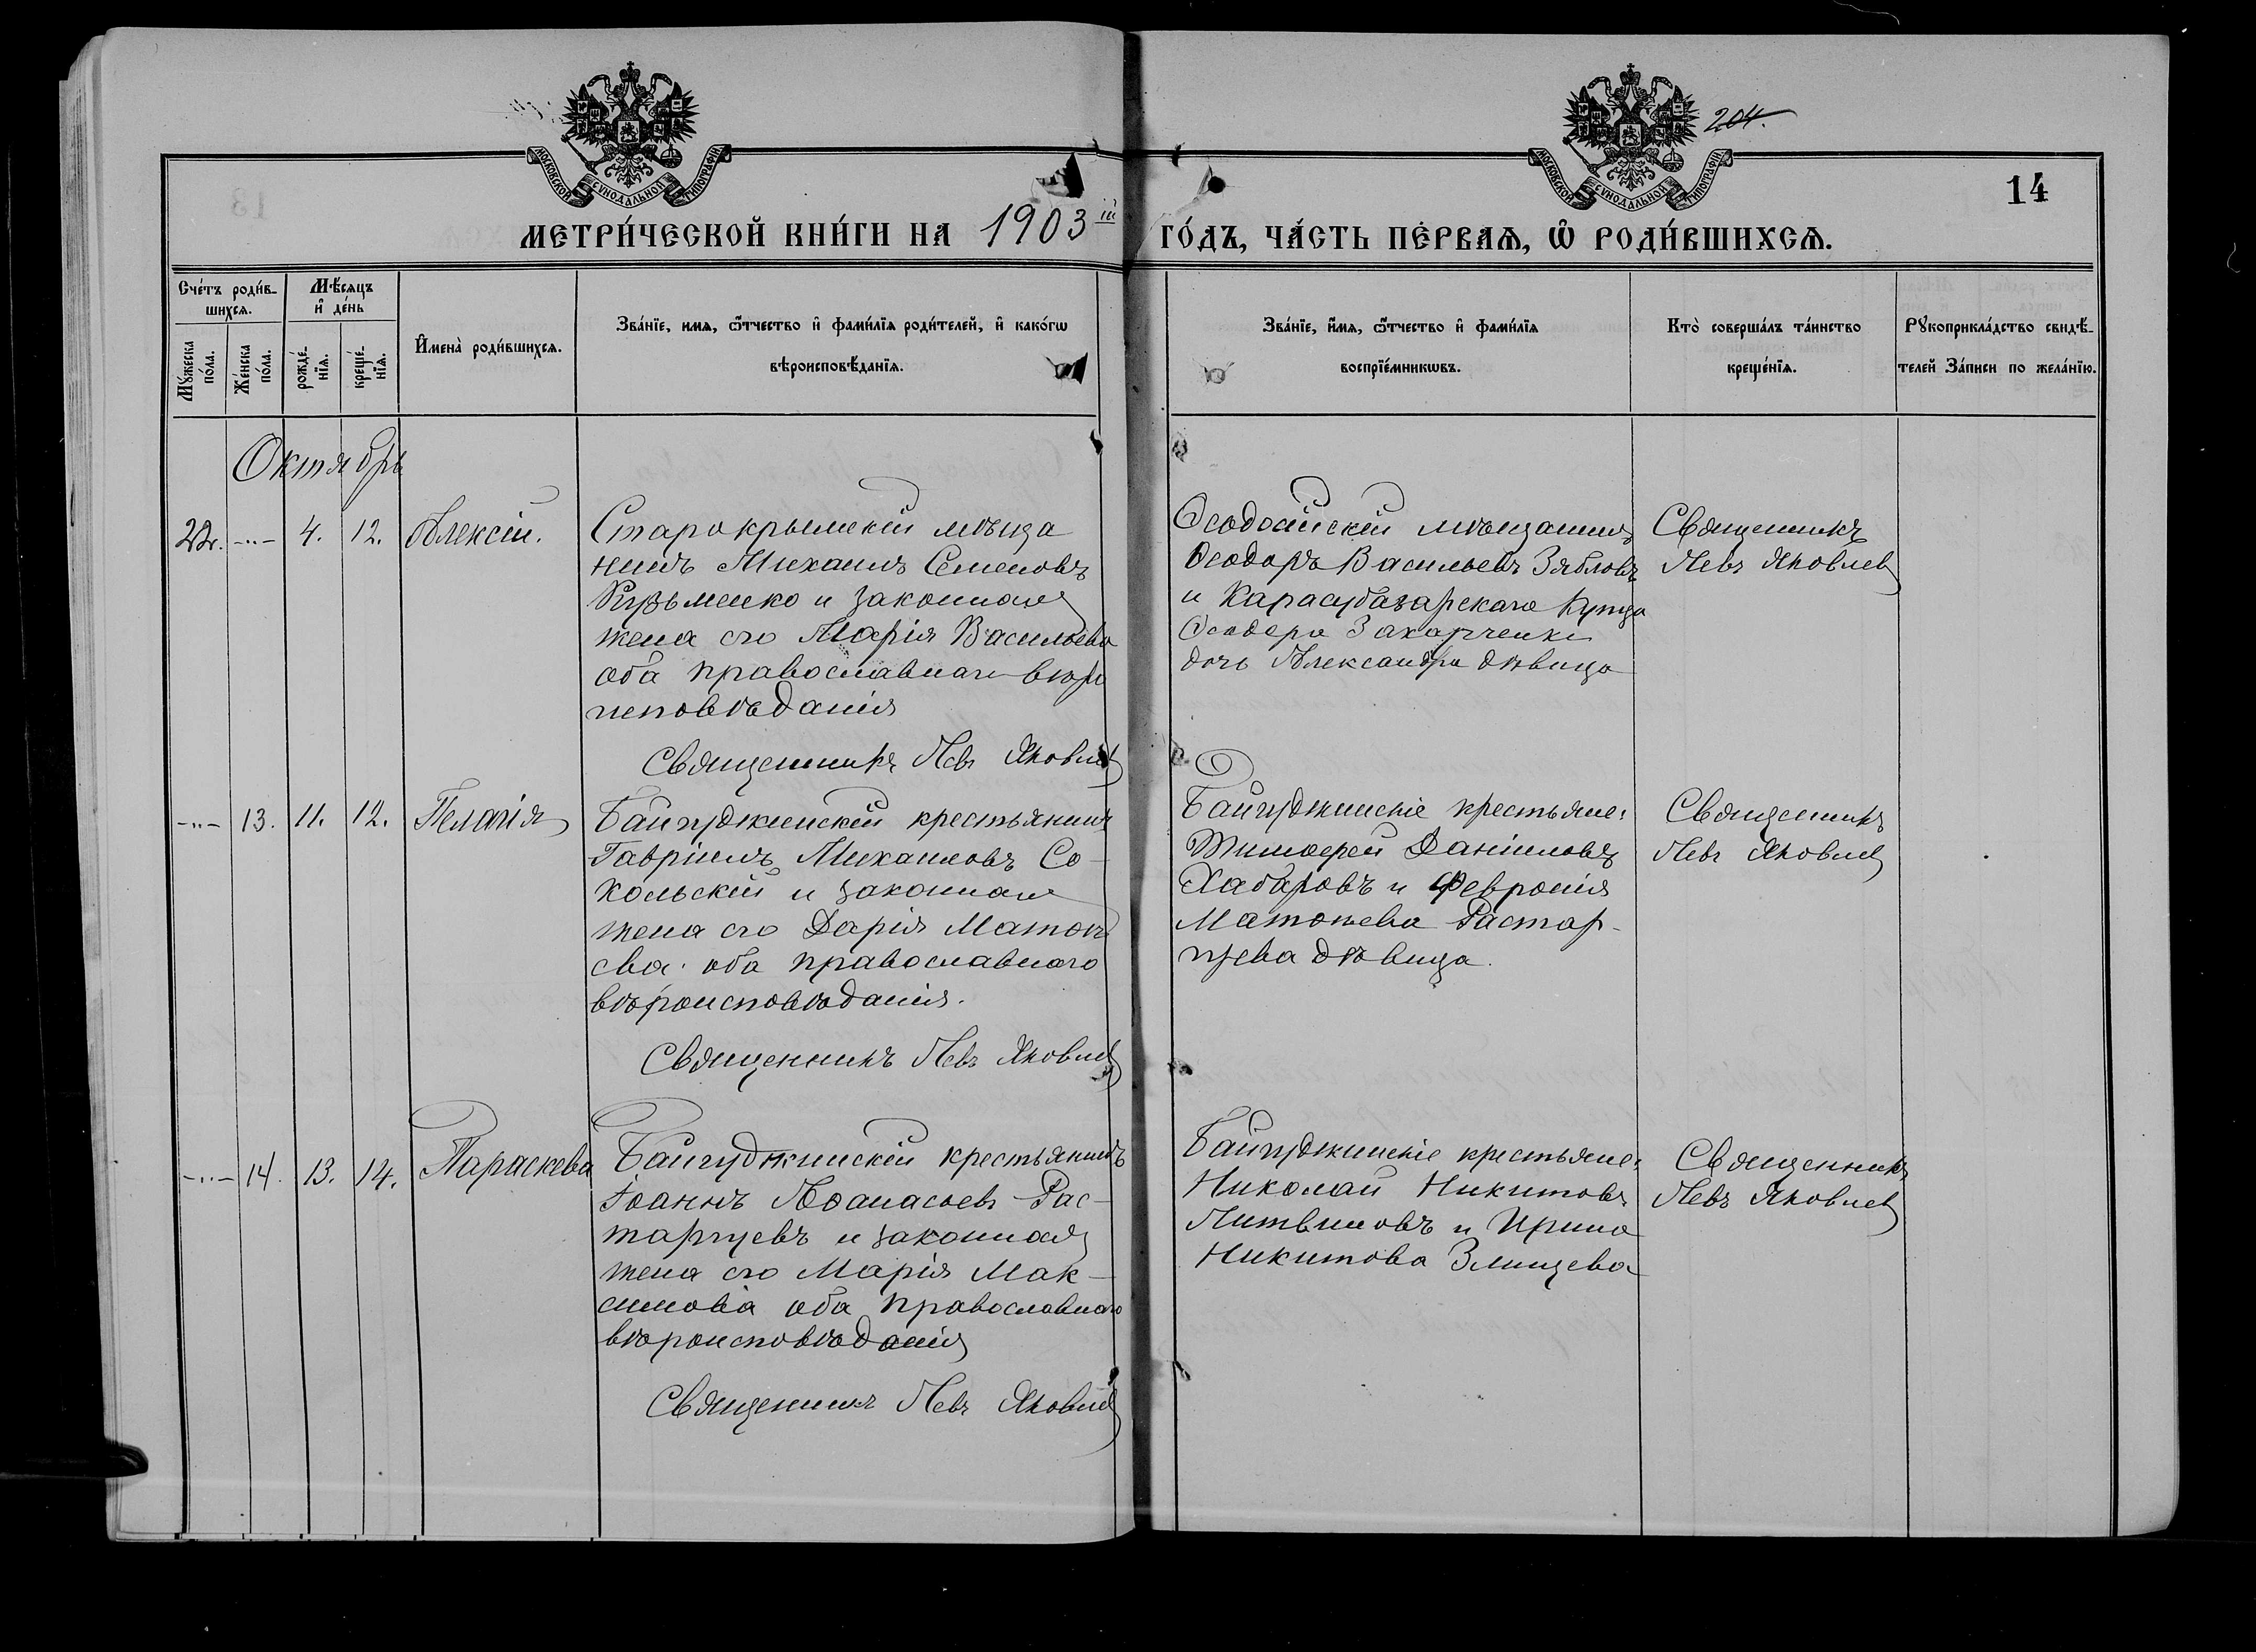 204.
14
МОСКОВСКОЙ СѴНОДАЛЬНОЙ ТИПОГРАФІИ
МОСКОВСКОЙ СѴНОДАЛЬНОЙ ТИПОГРАФІИ
МЕТРИ́ЧЕСКОЙ КНИ́ГИ НА 1903 ій ГО́ДЪ, ЧА́СТЬ ПЕ́РВАѦ, Ѡ҆ РОДИ́ВШИХСѦ.
Сче́тъ роди́в-
шихсѧ.
Мѣ́сяцъ
и҆ де́нь
Мꙋ́жеска
по́ла.
Же́нска
по́ла.
рожде́-
нїѧ.
креще́-
нїѧ.
И҆мена̀ роди́вшихсѧ.
Зва́нїе, имѧ, ѻ҆́тчество и҆ фами́лїѧ роди́телей, и҆ како́гѡ
вѣроисповѣ́данїѧ.
Зва́нїе, и҆́мѧ, ѻ҆́тчество и҆ фами́лїѧ
воспрїе́мникѡвъ.
Кто̀ соверша́лъ та́инство
креще́нїѧ.
Рꙋкоприкла́дство свидѣ́-
телей За́писи по жела́нїю.
Октябрь
22. -"- 4. 12. Алексій.
Старокрымскій мѣща
нинъ Михаилъ Семеновъ
Кузьменко и законная
жена его Марія Васильева
оба православнаго вѣро
исповѣданія
Священникъ Левъ Яковлев
Ѳеодосійскій мѣщанинъ
Ѳеодоръ Васильевъ Зябловъ
и Карасубазарскаго Купца
Ѳеодора Захарченки
дочь Александра дѣвица
Священникъ
Левъ Яковлев
-"- 13. 11. 12. Пелагія
Байгуджинскій крестьянинъ
Гавріилъ Михаиловъ Со-
кольскій и законная
жена его Дарія Матѳе
ева оба православнаго
вѣроисповѣданія.
Священникъ Левъ Яковлев
Байгуджинскіе крестьяне:
Тимоѳей Даніиловъ
Хабаровъ и Февронія
Матѳеева Растор-
гуева дѣвица.
Священникъ
Левъ Яковлев
-"- 14. 13. 14. Параскева
Байгуджинскій крестьянинъ
Іоаннъ Аѳанасьевъ Рас-
таргуевъ и законная
жена его Марія Мак-
симова оба православнаго
вѣроисповѣданія
Священникъ Левъ Яковлев
Байгуджинскіе крестьяне:
Николай Никитовъ
Литвиновъ и Ирина
Никитова
Священникъ
Левъ Яковлев